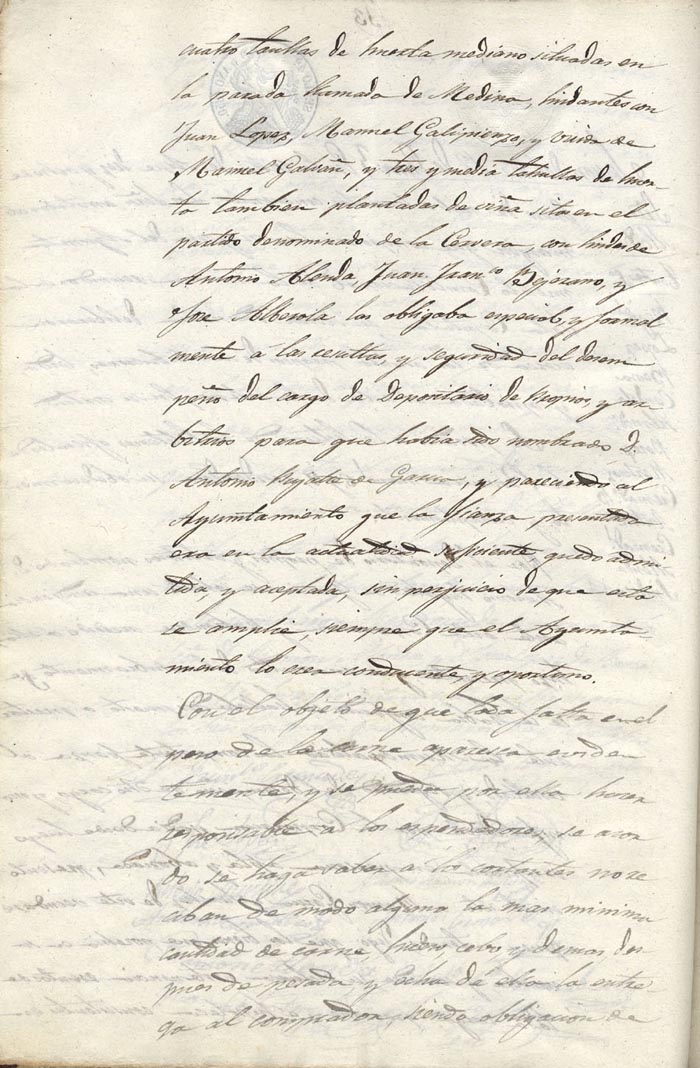 cuatro taullas de huerta mediano situadas en
la parada llamada de Medina, lindantes con
Juan Lopez, Manuel Galipienzo, y viuda de
Manuel Galvañ, y tres y media tahullas de huer-
ta tambien plantadas de viña sitas en el
partido denominado de la Cervera, con lindes de
Antonio Alenda, Juan Fran.co Bejerano, y
Jose Alberola las obligaba especial, y formal
mente á las resultas, y seguridad del desem
peño del cargo de Depositario de Propios, y ar
bitrios para que habia sido nombrado D.
Antonio de Garcia, y pareciendo al
Ayuntamiento que la fianza presentada
era en la actualidad suficiente quedo admi
tida, y aceptada, sin perjuicio de que esta
se amplie, siempre que el Ayunta-
miento lo crea conducente, y oportuno.
Con el objeto de que toda falta en el
peso de la carne aparesca eviden
temente, y se pueda por ella hacer
responsable á los espendedores, se acor
dó se haga saber á los cortantes no re
caban de modo alguno la mas minima
cantidad de carne, hueso, cebo, y demas des
pues de pesada, y hecha de ella la entre-
ga al comprador, siendo obligacion de